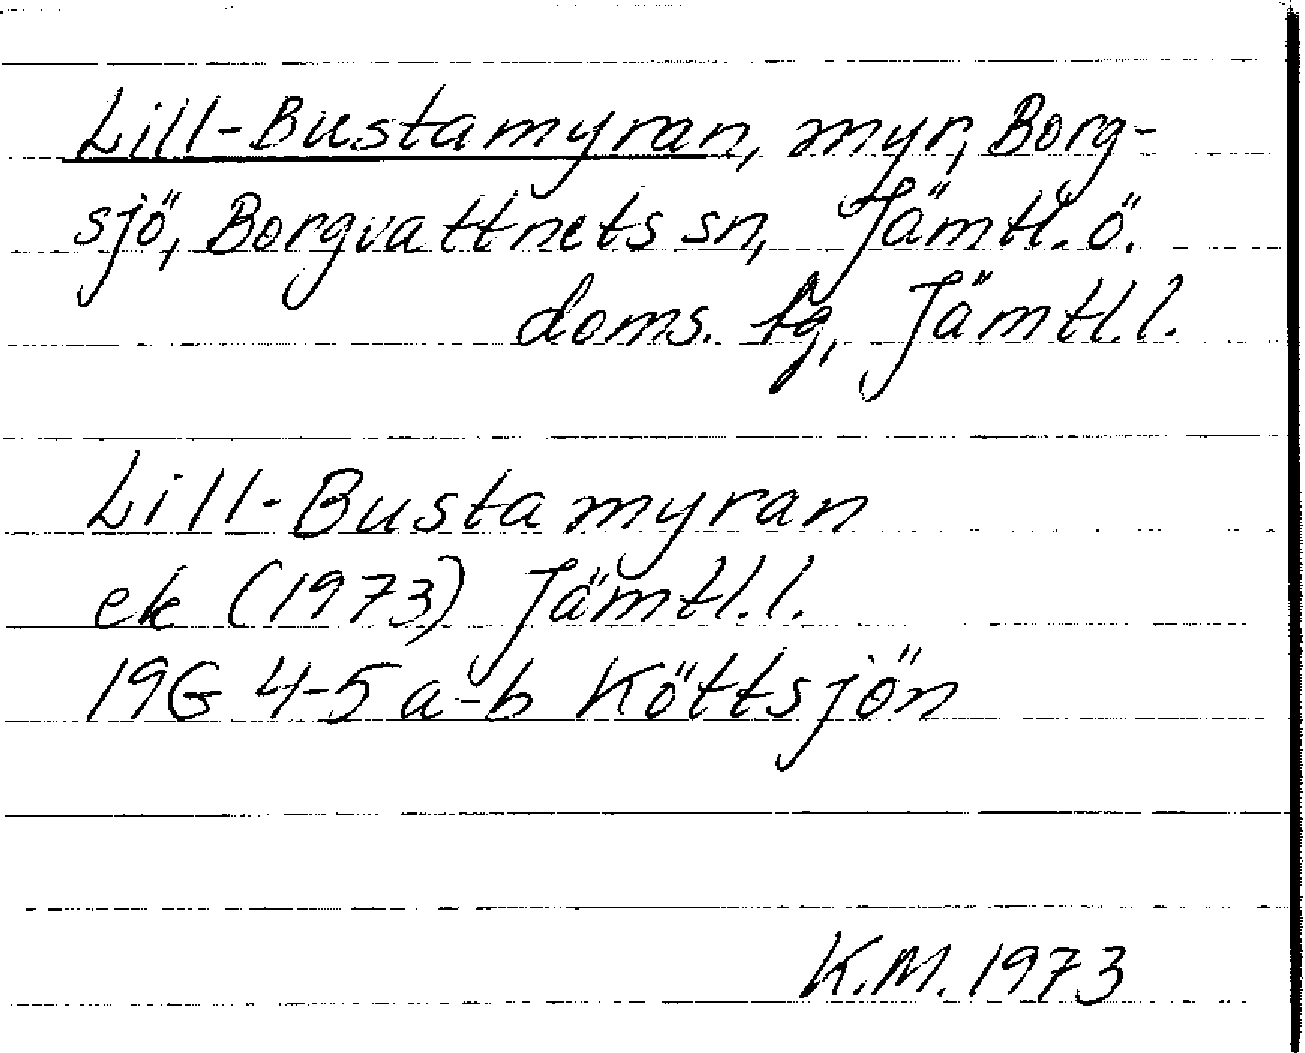 Lill-Bustamyran, myr, Borg-
sjö, Borgvattnets sn, Jämtl. ö.
doms. tg, Jämtl. l.
Lill-Bustamyran
ek (1973) Jämtl. l.
19G 4-5 a-b Köttsjön
K.M. 1973